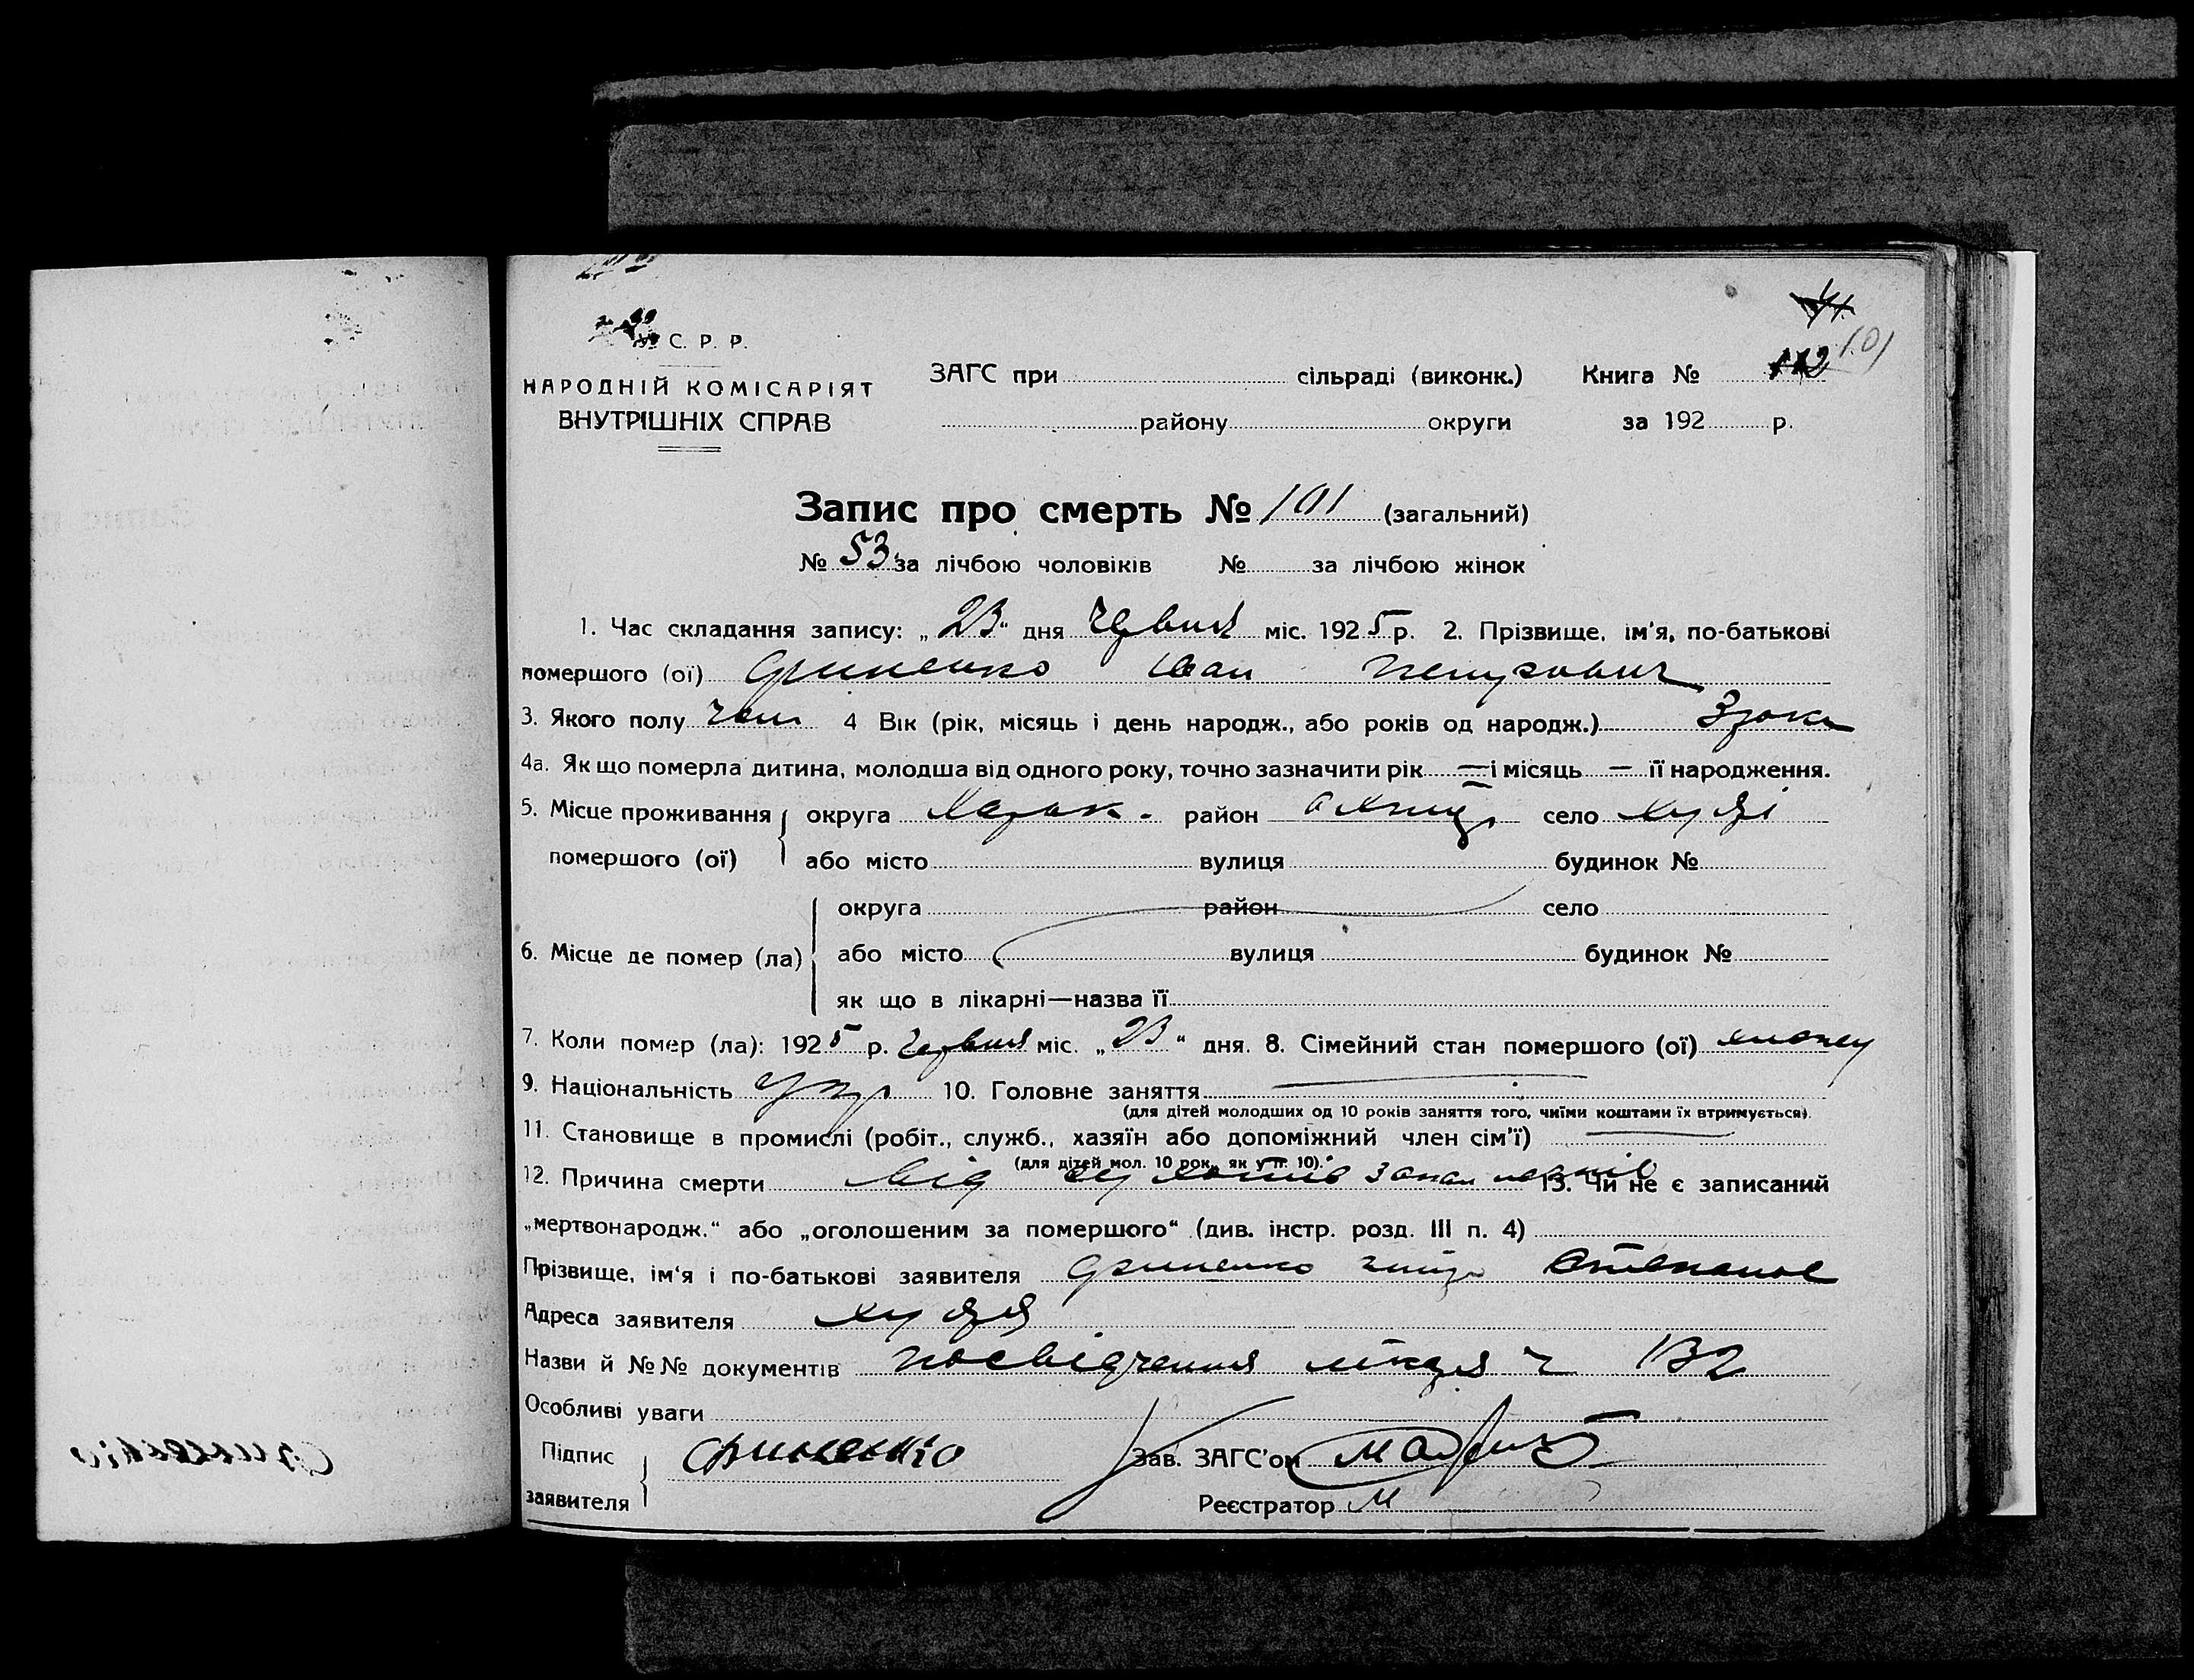 У. С. Р. Р.
НАРОДНІЙ КОМІСАРІЯТ
ВНУТРІШНІХ СПРАВ
101
ЗАГС при сільраді (виконк.) Книга №
району округи за 192 р.
Запис про смерть № 101 (загальний)
№ 53 за лічбою чоловіків № за лічбою жінок
1. Час складання запису: „23“ дня червня міс. 1925 р. 2. Прізвище, ім'я, по-батькові
помершого (ої) Іван Петрович
3. Якого полу чол 4 Вік (рік, місяць і день народж., або років од народж.) 3 роки
4а. Як що померла дитина, молодша від одного року, точно зазначити рік — і місяць — її народження.
5. Місце проживання округа Харьк. район село
помершого (ої) або місто вулиця будинок №
округа район село
6. Місце де помер (ла) або місто вулиця будинок №
як що в лікарні—назва її
7. Коли помер (ла): 1925 р. червня міс. „23“ дня. 8. Сімейний стан помершого (ої)
9. Національність укр 10. Головне заняття —
(для дітей молодших од 10 років заняття того, чиїми коштами їх втримується).
11. Становище в промислі (робіт., служб., хазяїн або допоміжний член сім'ї) —
(для дітей мол. 10 рок., як у п. 10).
12. Причина смерти від 13. Чи не є записаний
„мертвонародж.“ або „оголошеним за помершого“ (див. інстр. розд. III п. 4)
Прізвище, ім'я і по-батькові заявителя Степанов
Адреса заявителя
Назви й №№ документів посвідчення лікаря ч 132
Особливі уваги
Підпис Зав. ЗАГС'ом
заявителя Реєстратор М